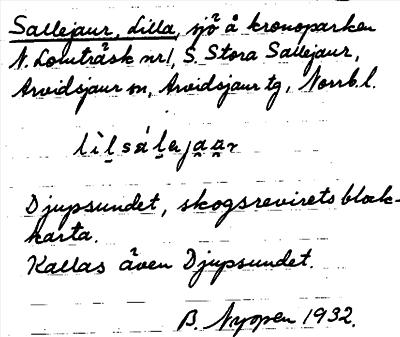 Sallejaur, Lilla, sjö å kronoparken
N. Lomträsk nr 1, S. Stora Sallejaur,
Arvidsjaur sn, Arvidsjaur tg, Norrb. l.
Djupsundet, skogsrevirets block-
karta.
Kallas även Djupsundet.
B. Nyopen 1932.